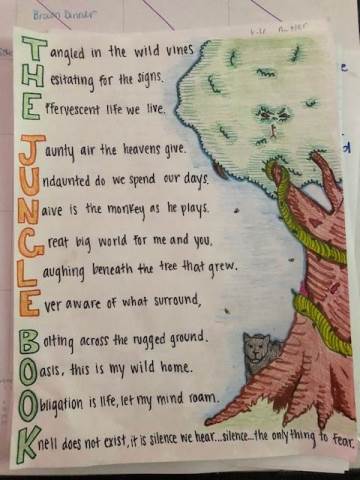 Brain Dinner
Tangled in the wild vines
Hesitating for the signs.
Effervescent life we live.
Jaunty air the heavens give.
Undaunted do we spend our days,
Naive is the monkey as he plays.
Great big world for me and you,
Laughing beneath the tree that grew.
Ever aware of what surround,
Bolting across the rugged ground.
Oasis, this is my wild home.
Obligation is life, let my mind roam.
Knell does not exist, it is silence we hear...silence...the only thing to fear.